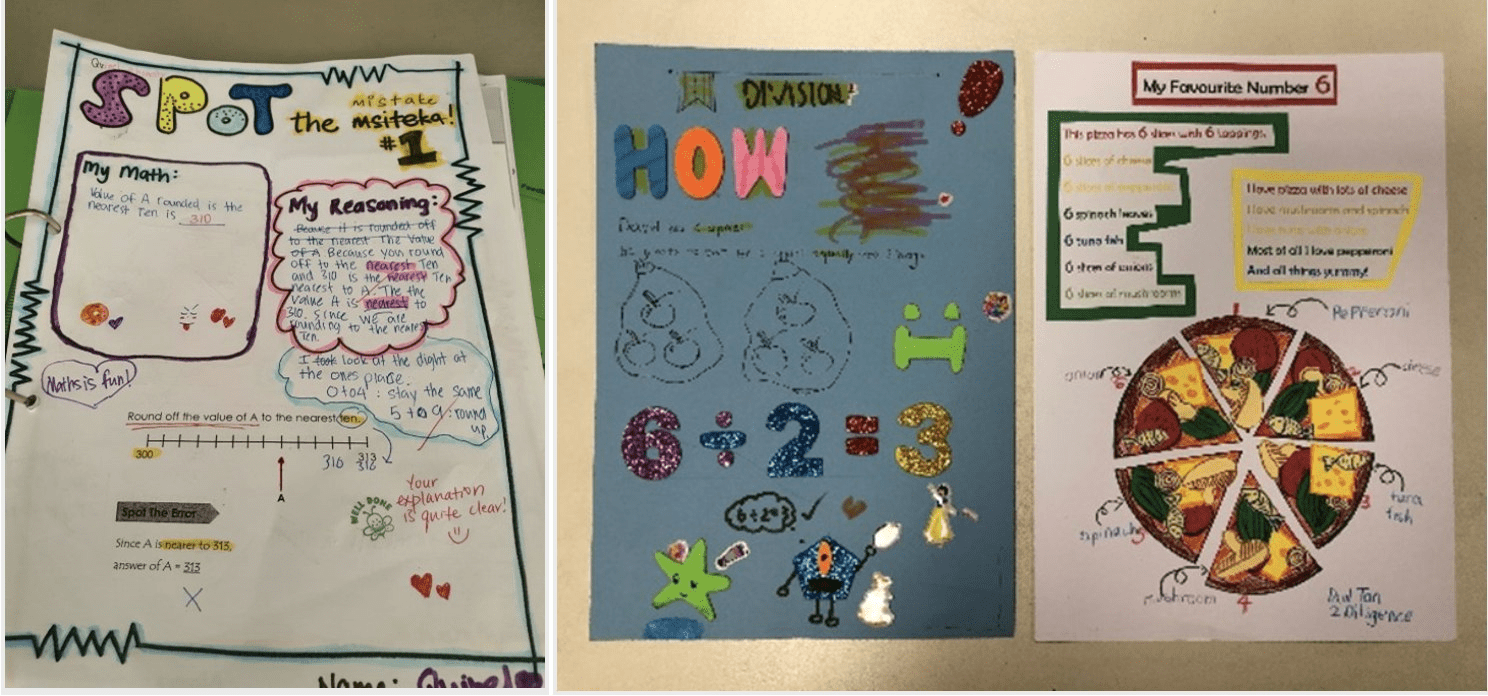 SPOT
mistake
the msiteka!
#1
My Math:
Value of A rounded is the
nearest Ten is 310
My Reasoning:
Because it is rounded off
to the nearest The Value
of A Because you round
off to the nearest Ten
and 310 is the nearest Ten
nearest to A. The the
Value A is nearest to
310. Since we are
rounding to the nearest
Ten.
I took look at the dight at
the ones place.
0 to 4 : stay the same
5 to 9 : round
up
Maths is fun!
Round off the value of A to the nearest ten.
300
310
313
A
WELL DONE
Your
explanation
is quite clear!
Spot The Error
Since A is nearer to 313,
answer of A = 313
X
Name:
DIVISION
HOW
David has
equally
i:
6 ÷ 2 = 3
6÷2=3
My Favourite Number 6
This pizza has 6 slices with 6 toppings.
6 slices of cheese
6 slices of pepperoni
6 spinach leaves
6 tuna fish
6 slices of onions
6 slices of mushrooms
I love pizza with lots of cheese
I love mushrooms and spinach
I love tuna with onions
Most of all I love pepperoni
And all things yummy!
1
PePPeroni
onion
cheese
3
tuna
fish
spinach
5
mushroom
4
Tan
2 Diligence